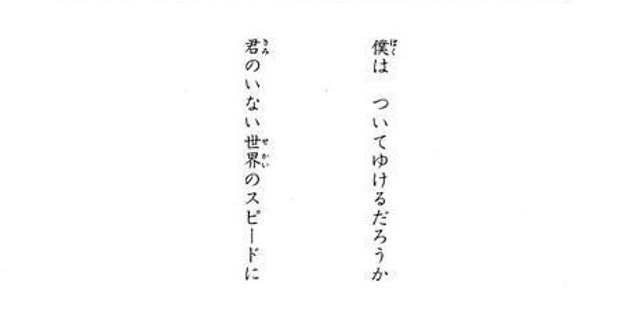 僕は ついてゆけるだろうか
君のいない世界のスピードに